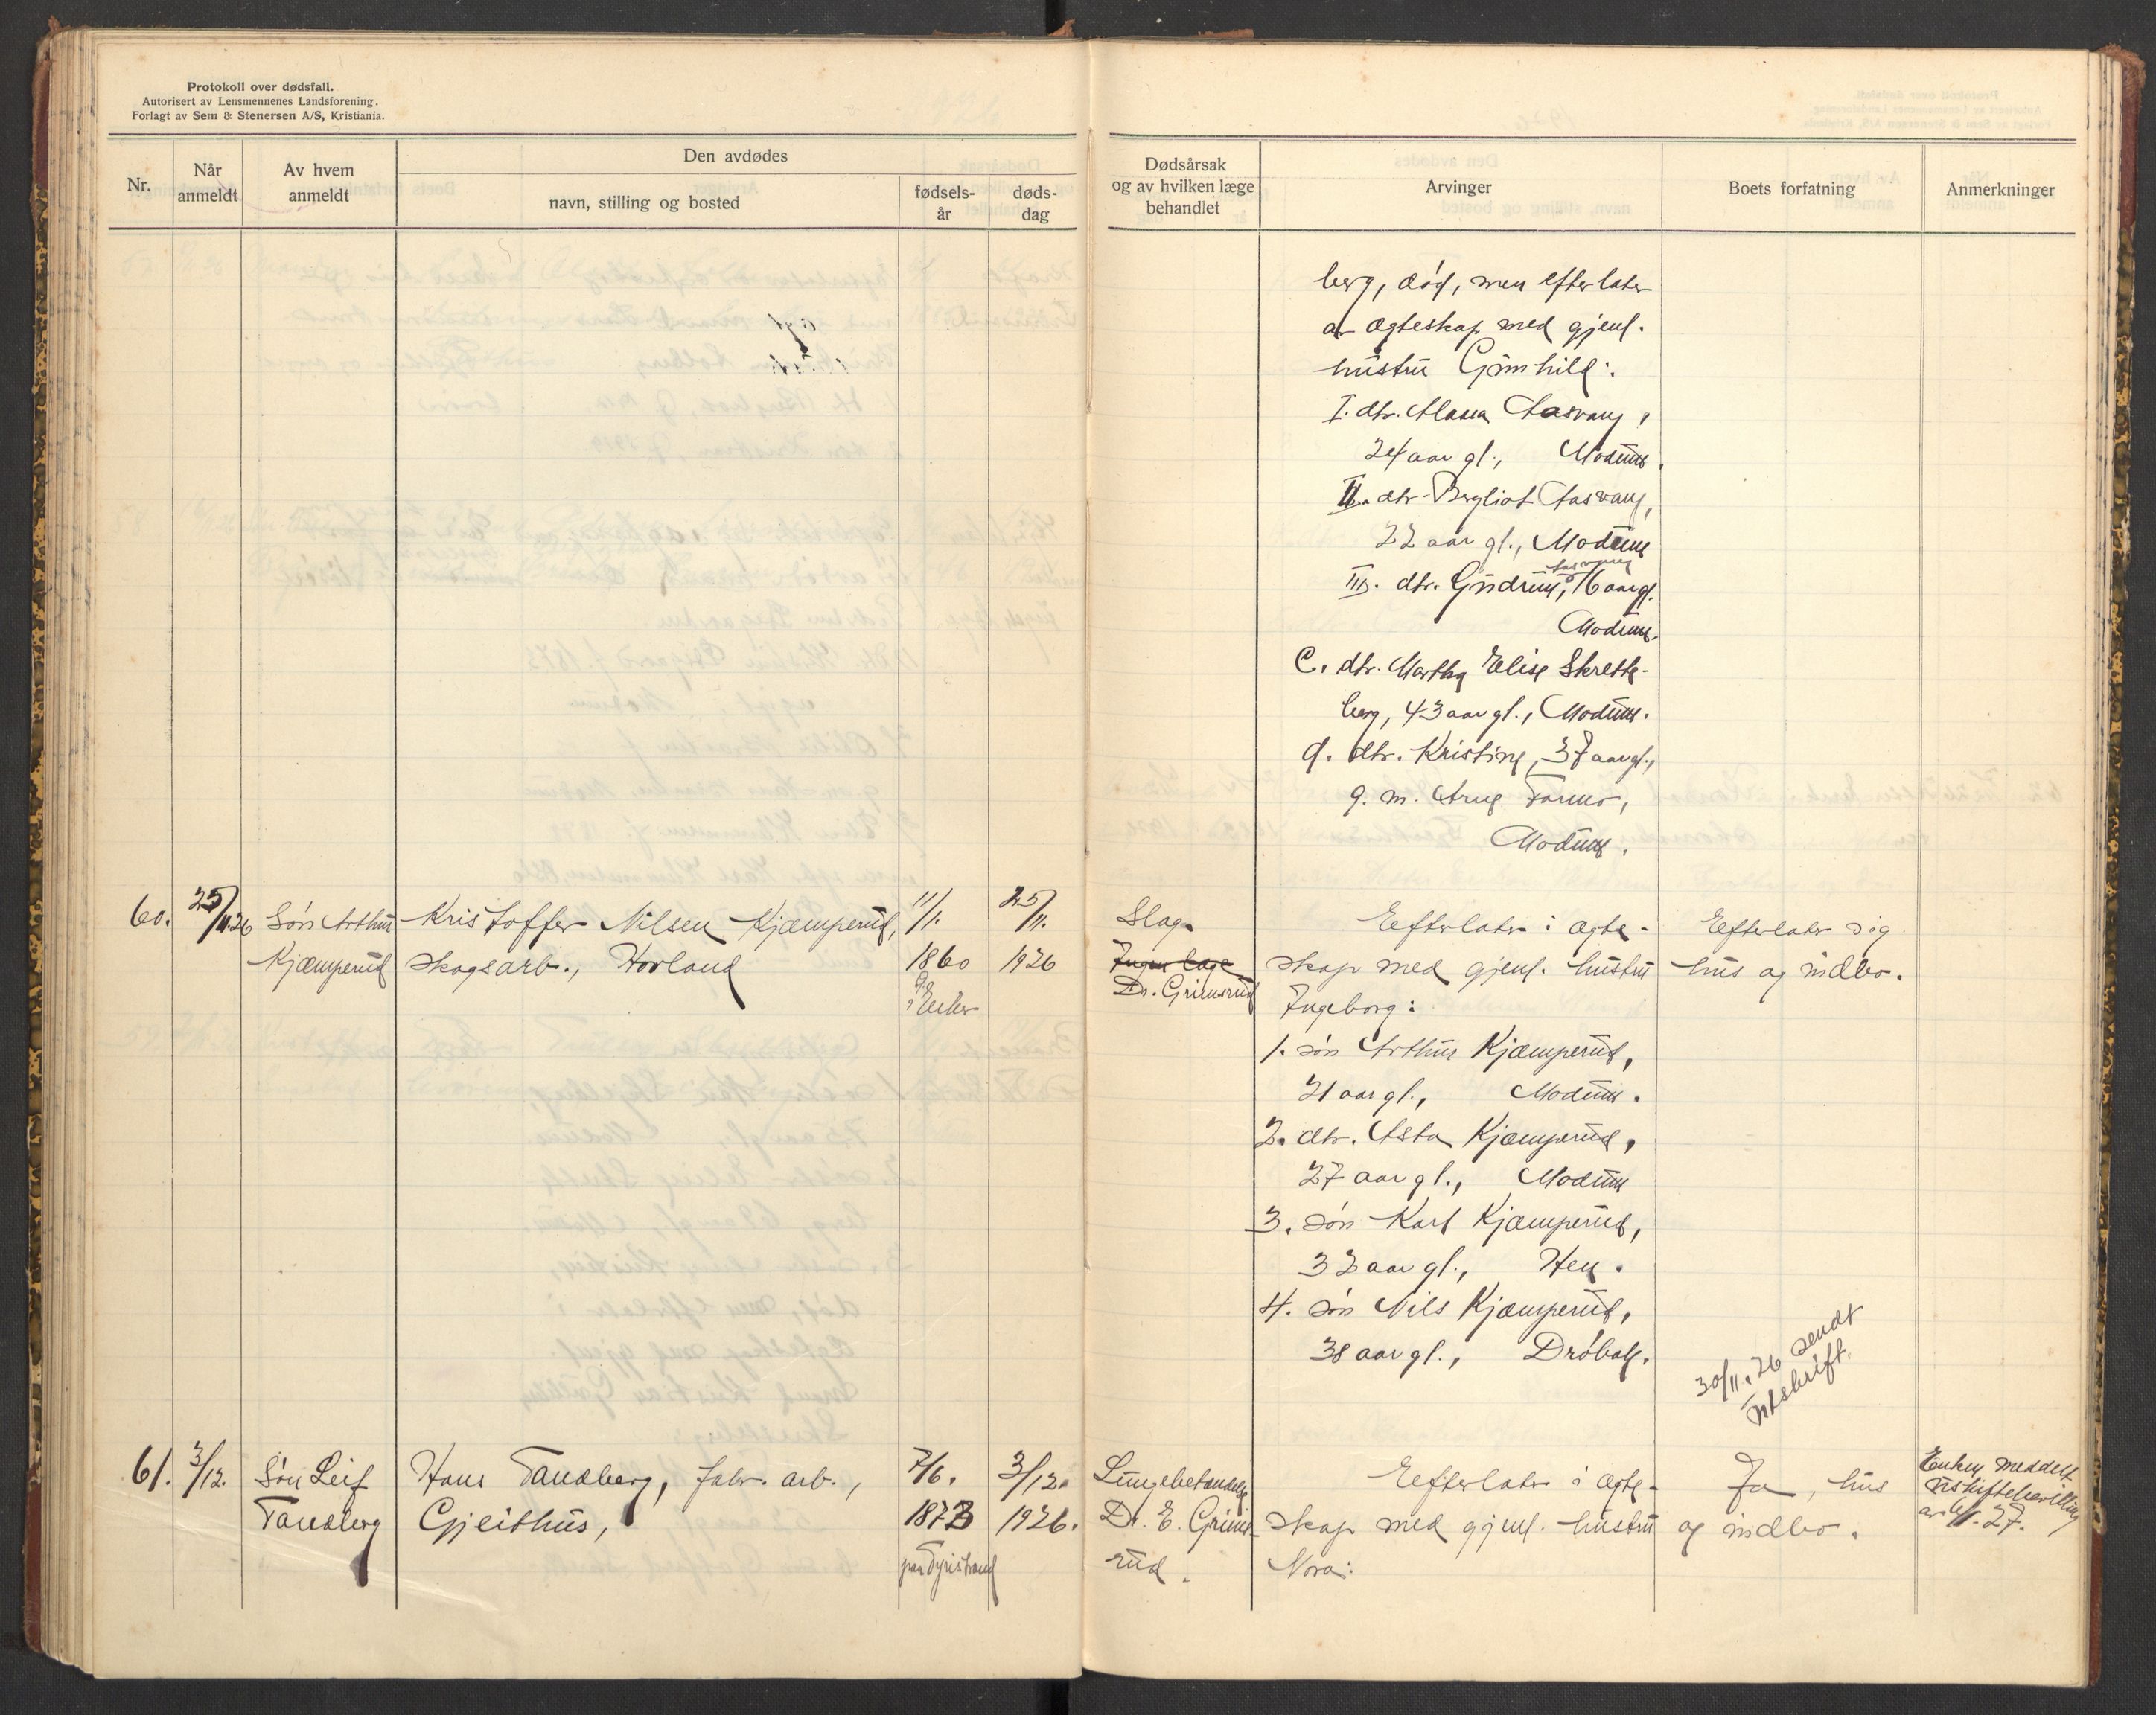 Protokoll over dødsfall.
Autorisert av Lensmennenes Landsforening.
Forlagt av Sem & Stenersen A/S, Kristiania.
Nr.
Når
anmeldt
Av hvem
anmeldt
Den avdødes
navn, stilling og bosted
fødsels-
år
døds-
dag
Dødsårsak
og av hvilken læge
behandlet
Arvinger
Boets forfatning
Anmerkninger
berg, død, men efterlater
av ægteskap med gjenl.
hustru Gunhild:
I. dtr. Maria Aasvang,
24 aar gl., Modum.
II. dtr. Bergliot Aasvang,
22 aar gl., Modum
Aasvang
III. dtr. Gudrun, 16 aar gl.
Modum.
C. dtr. Martha Elise Skrette-
berg, 43 aar gl., Modum.
d. dtr. Kristine, 37 aar gl.,
g. m. Arne Formo,
Modum.
60. 25/11.26 Søn Arthur Kristoffer Nilsen Kjæmperud, 11/1. 25/11.
Kjæmperud skogsarb., Hovland 1860 1926
i Eker
Slag.
Ingen læge
Dr. Grimsrud
Eefterlater i ægte-
skap med gjenl. hustru
Ingeborg:
1. søn Arthur Kjæmperud,
21 aar gl., Modum.
2. dtr. Asta Kjæmperud,
27 aar gl., Modum
3. søn Karl Kjæmperud,
32 aar gl., Hen.
4. søn Nils Kjæmperud,
38 aar gl., Drøbak.
Eefterlater sig
hus og indbo.
30/11.26 sendt
utskrift.
61. 3/12. Søn Leif Hans Tandberg, fabr. arb., 7/6. 3/12.
Tandberg Gjeithus, 1873 1926.
paa Tyristrand
Lungebetændelse
Dr. E. Grims-
rud.
Eefterlater i ægte-
skap med gjenl. hustru
Nora:
Ja, hus
og indbo.
Enken meddelt
uskiftebevilling
27.